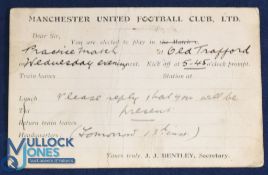 MANCHESTER UNITED FOOTBALL CLUB, LTD.
Dear Sir,
You are elected to play in the Matches,
Practice Match at Old Trafford
Wednesday evening next. Kick off at 5-45 o'clock prompt.
Train leaves Station at
Lunch Please reply that you will be
Tea present
Return train leaves
Headquarters (Tomorrow 13th inst.)
Yours truly, J. J. BENTLEY, Secretary.
MULLOCK
JONES